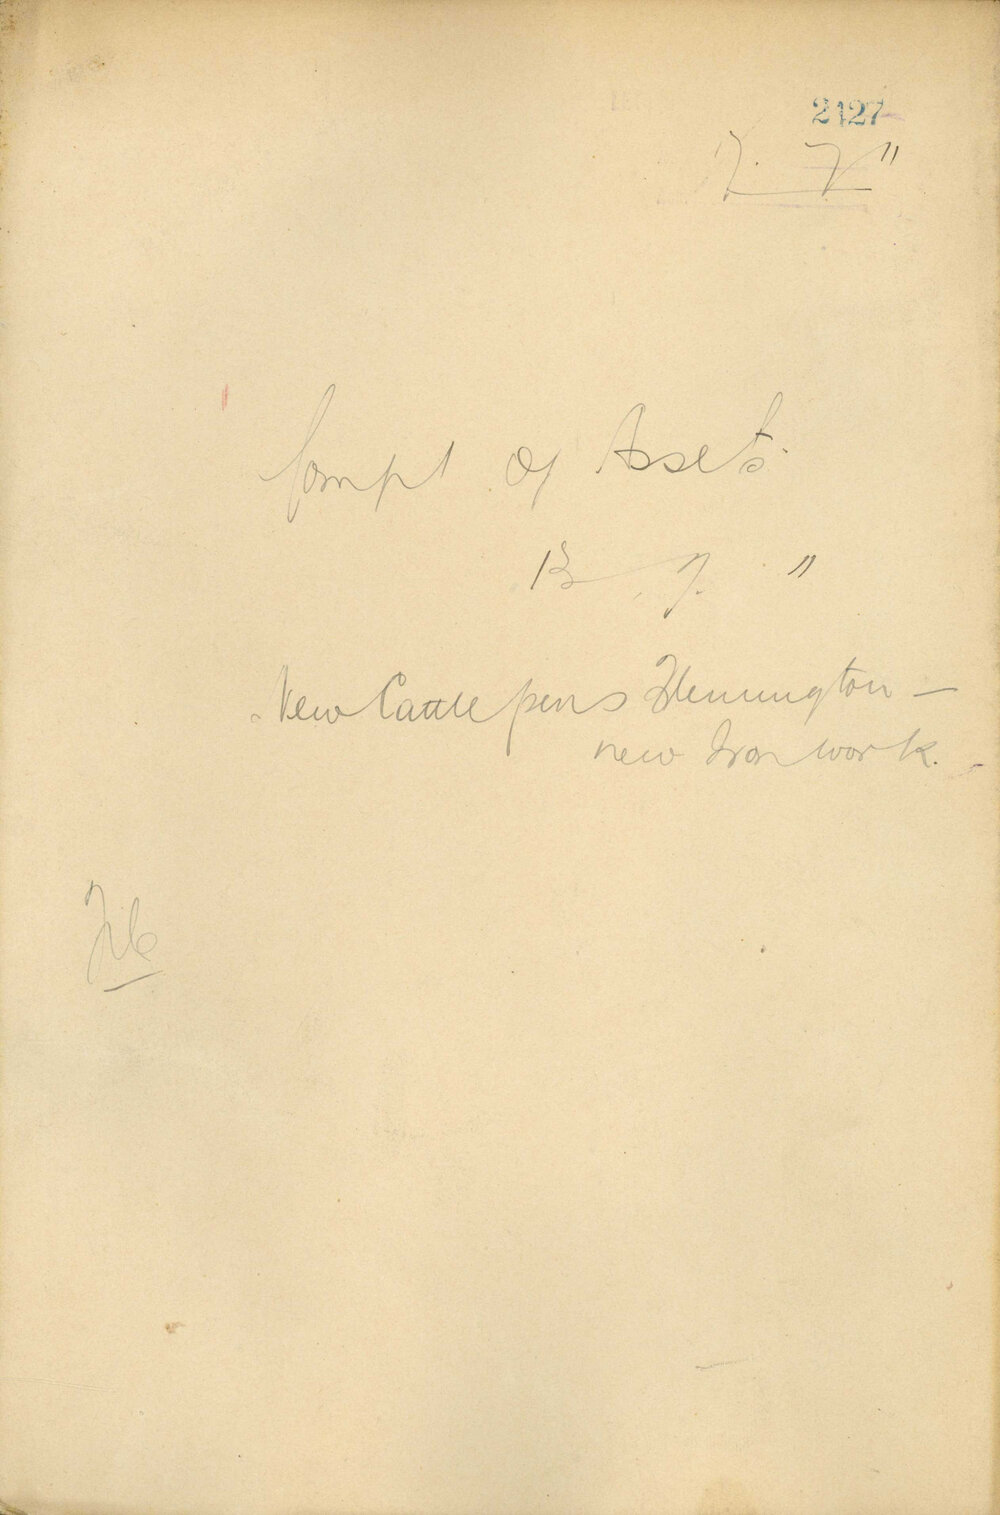 2127
7. 7"
Compt of Assets.
13 . 7. "
New Cattle pens Flemington —
new Iron work.